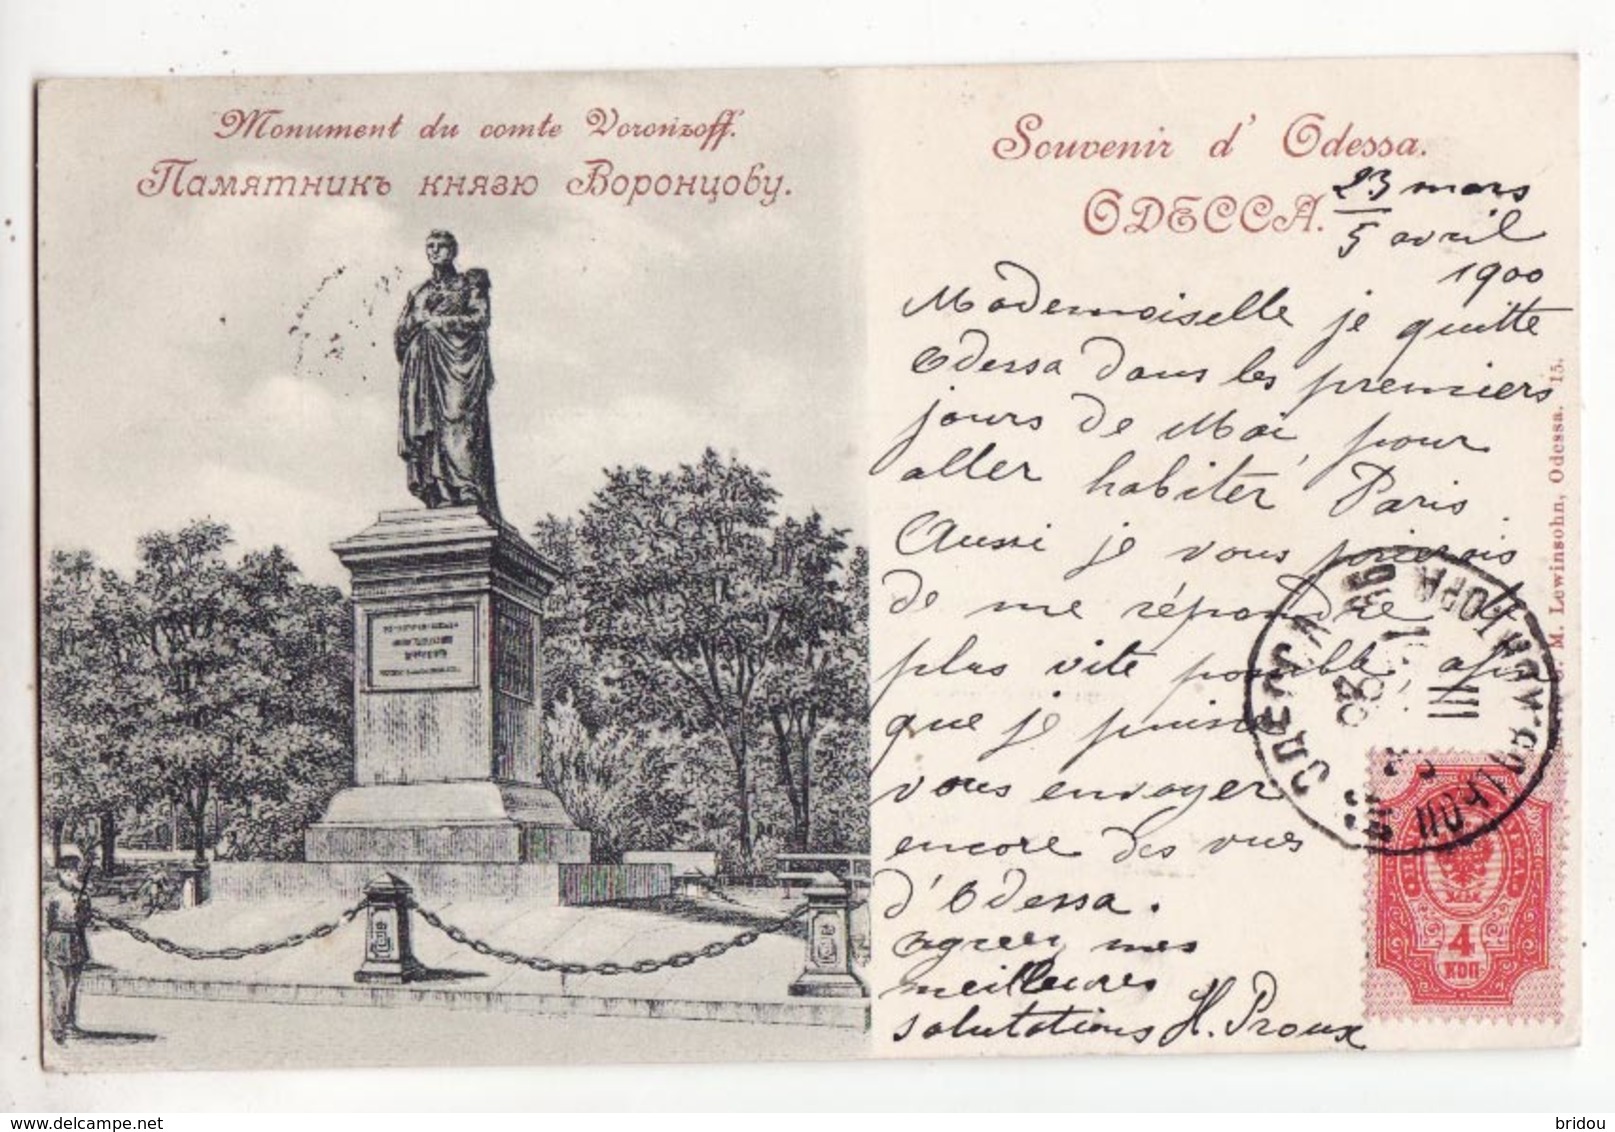 Monument du comte Voronzoff.
Памятникъ князю Воронцову.
Souvenir d'Odessa.
ОДЕССА.
23 mars
5 avril
1900
Mademoiselle je quitte
Odessa dans les premiers
jours de Mai, pour
aller habiter Paris.
Aussi je vous prierais
de me répondre le
plus vite possible, afin
que je puisse
vous envoyer
encore des vues
d'Odessa.
agréez mes
meilleures
salutations H. Proux
M. Lewinsohn, Odessa. 15.
ОДЕССА
III
4
КОП
delcampe.net
bridou